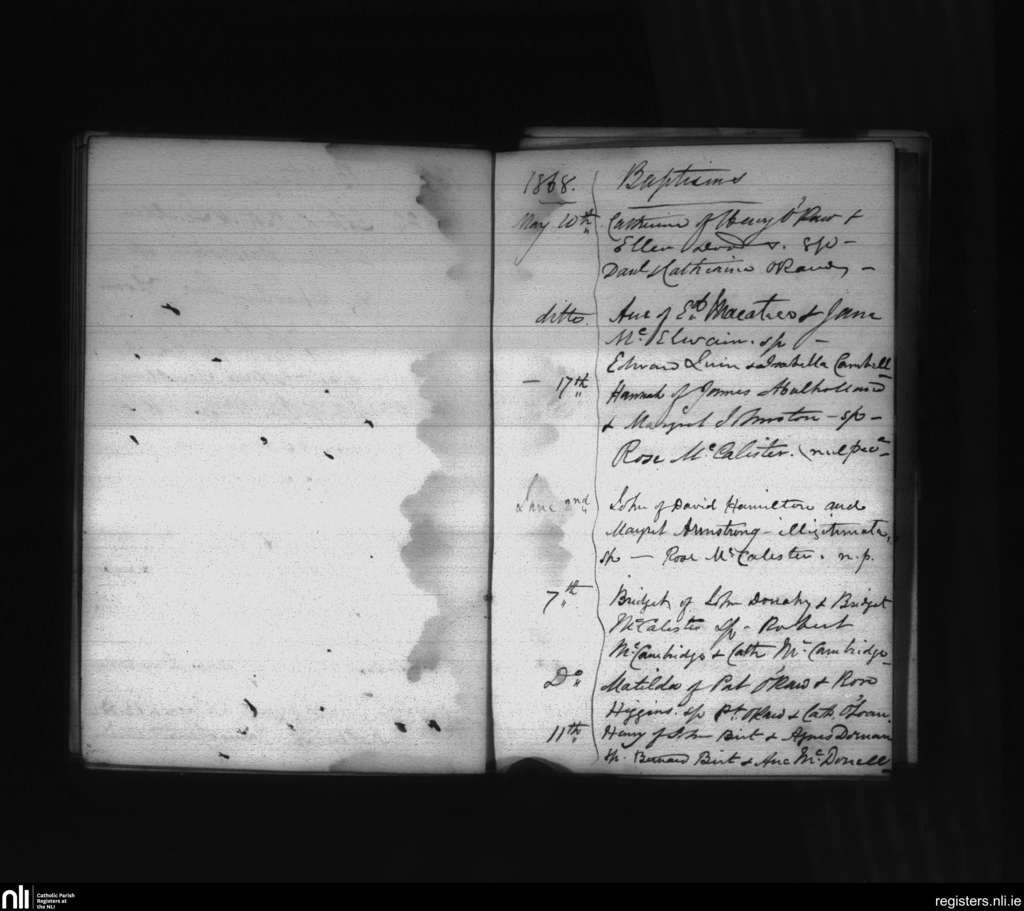 1868. Baptisms
May 10th Catherine of Henry O'Raw &
Ellen sp -
Danl & Catherine O'Raw -
ditto. Ane of Ed. & Jane
McElwain. sp -
Edward Quin & Isabella Cambell
- 17th Hannah of James Mulholland
& Margret Johnston - sp -
Rose McCalister.
June 2nd John of David Hamilton and
Margret Armstrong - illigitimata,
sp - Rose McCalister. n.p.
7th Bridget of John Donahy & Bridget
McCalister sp - Robert
McCambridge & Cath McCambridge
Do Matilda of Pat O'Raw & Rose
Higgins. sp Pt. O'Raw & Cath. O'Loan.
11th Henry of John Birt & Agnes Dornan
sp. Bernard Birt & Ane McDonell
nli
Catholic Parish
Registers at
the NLI
registers.nli.ie